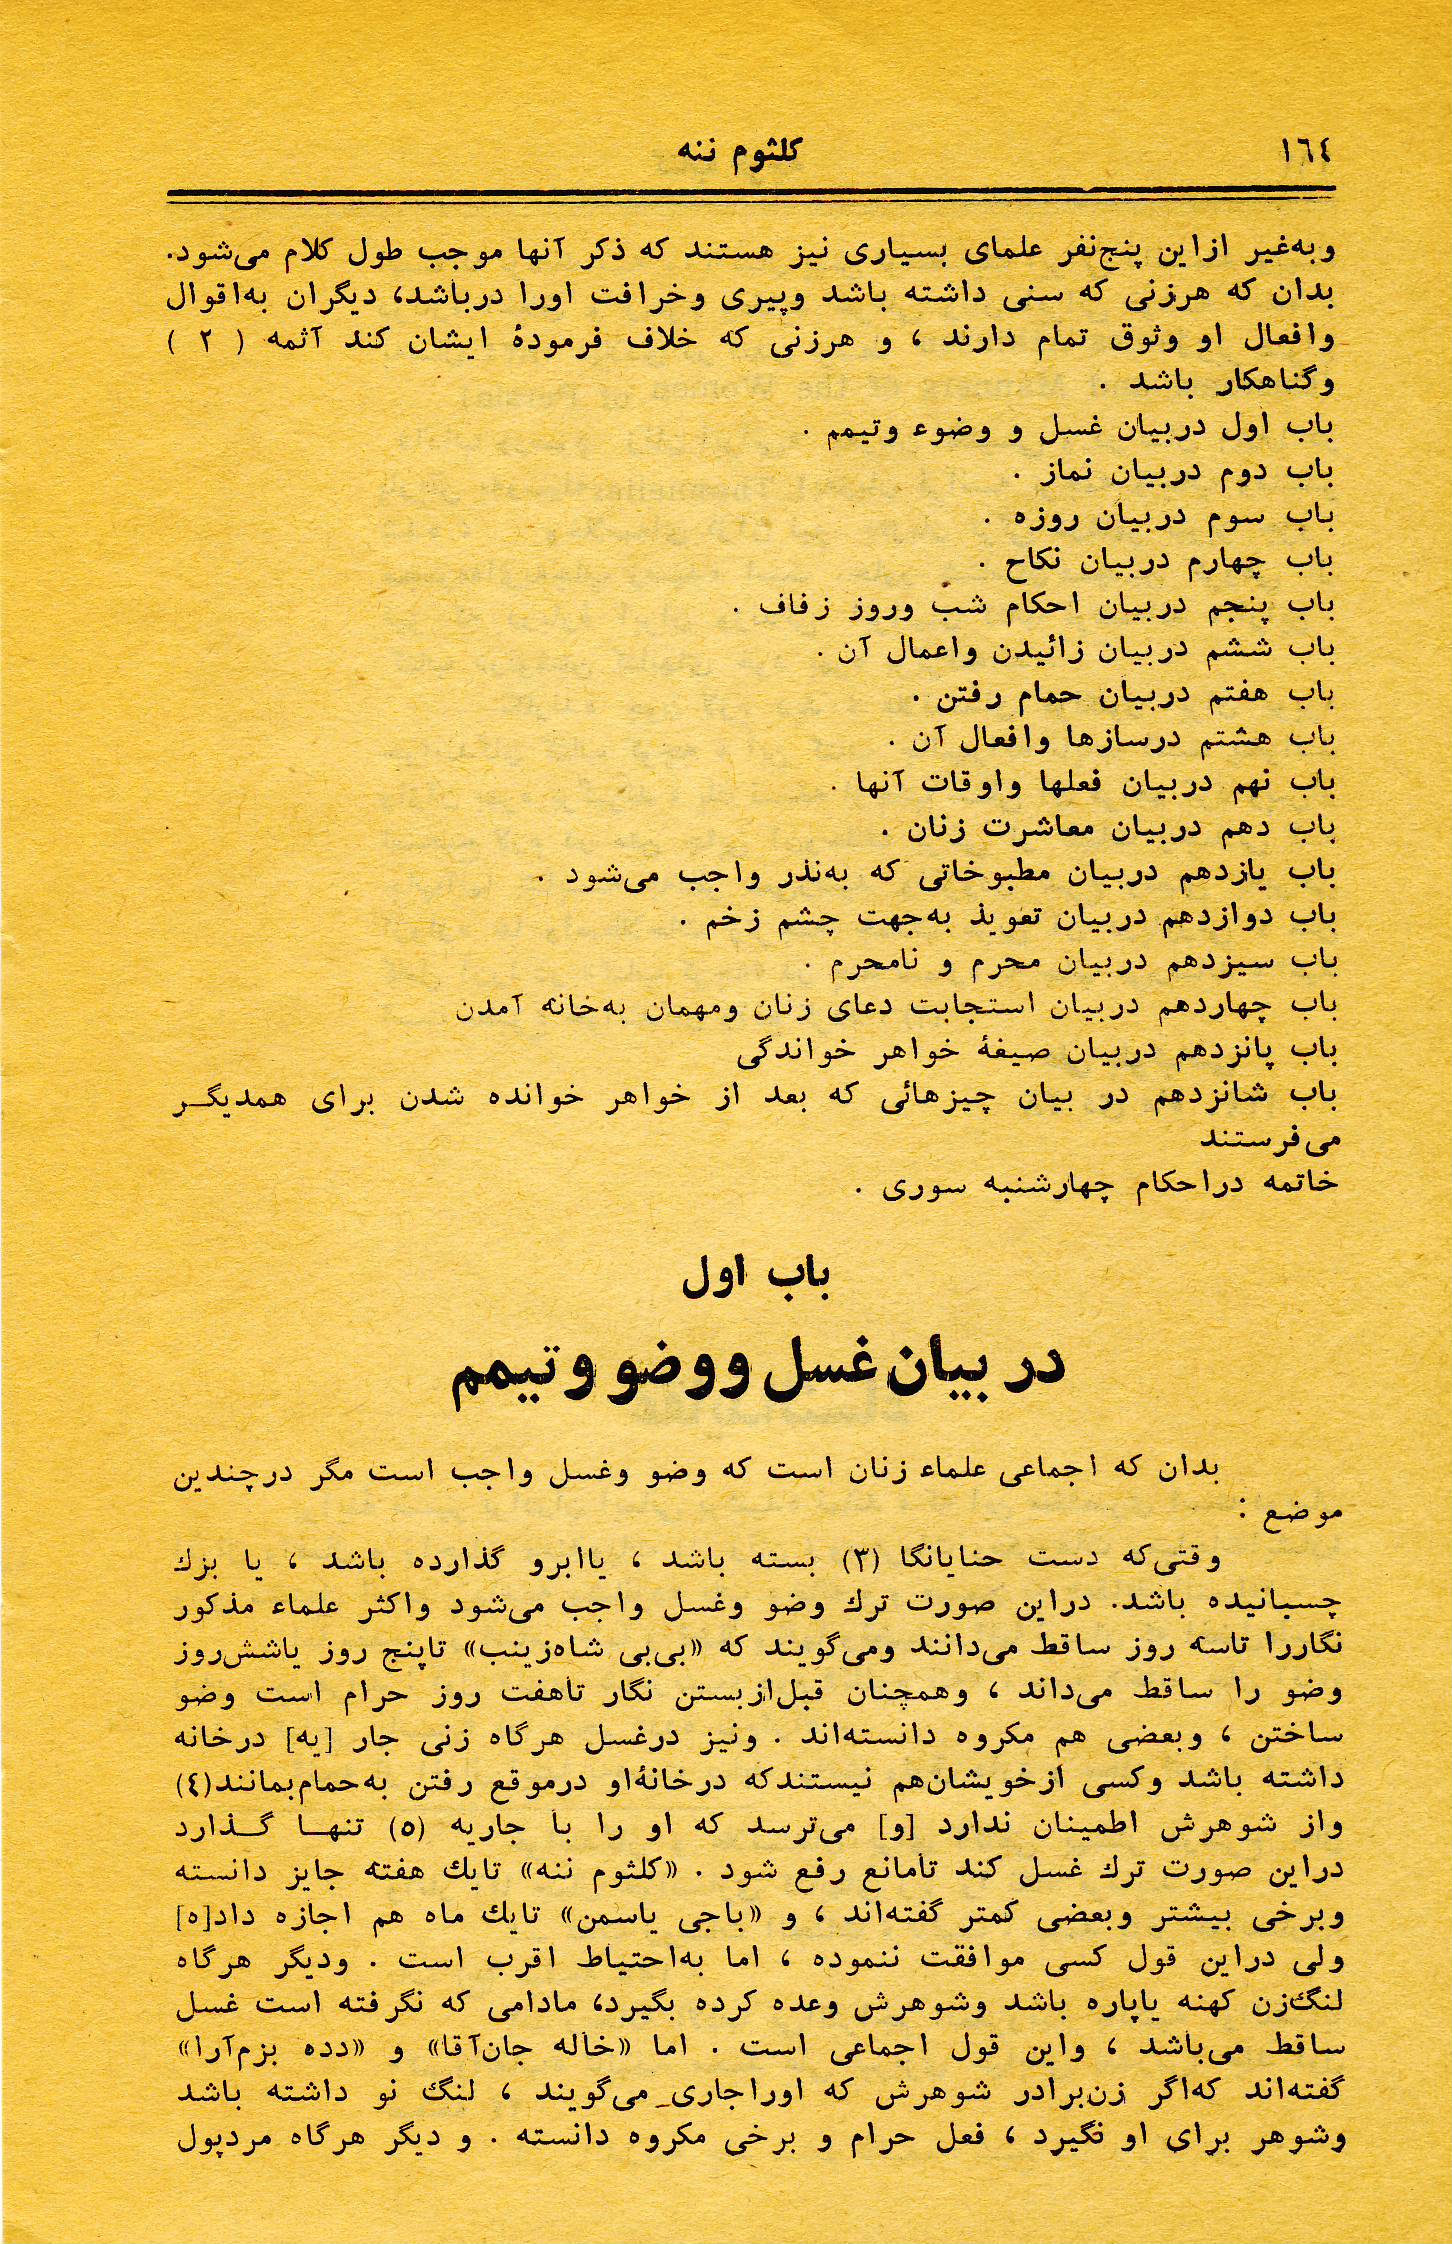 ١٦٤
كلثوم ننه
وبه‌غیر ازاین پنج‌نفر علمای بسیاری نیز هستند که ذکر آنها موجب طول کلام می‌شود.
بدان که هرزنی که سنی داشته باشد وپیری وخرافت اورا درباشد، دیگران به‌اقوال
وافعال او وثوق تمام دارند ، و هرزنی که خلاف فرمودهٔ ایشان کند آثمه ( ٢ )
وگناهکار باشد .
باب اول دربیان غسل و وضوء وتیمم .
باب دوم دربیان نماز .
باب سوم دربیان روزه .
باب چهارم دربیان نکاح .
باب پنجم دربیان احکام شب وروز زفاف .
باب ششم دربیان زائیدن واعمال آن .
باب هفتم دربیان حمام رفتن .
باب هشتم درسازها وافعال آن .
باب نهم دربیان فعلها واوقات آنها .
باب دهم دربیان معاشرت زنان .
باب یازدهم دربیان مطبوخاتی که به‌نذر واجب می‌شود .
باب دوازدهم دربیان تعویذ به‌جهت چشم زخم .
باب سیزدهم دربیان محرم و نامحرم .
باب چهاردهم دربیان استجابت دعای زنان ومهمان به‌خانه آمدن
باب پانزدهم دربیان صیغهٔ خواهر خواندگی
باب شانزدهم در بیان چیزهائی که بعد از خواهر خوانده شدن برای همدیگـر
می‌فرستند
خاتمه دراحکام چهارشنبه سوری .
باب اول
در بیان غسل و وضو و تیمم
بدان که اجماعی علماء زنان است که وضو وغسل واجب است مگر درچندین
موضع :
وقتی‌که دست حنایانگا (٣) بسته باشد ، یاابرو گذارده باشد ، یا بزك
چسبانیده باشد. دراین صورت ترك وضو وغسل واجب می‌شود واکثر علماء مذکور
نگاررا تاسه روز ساقط می‌دانند ومی‌گویند که «بی‌بی شاه‌زینب» تاپنج روز یاشش‌روز
وضو را ساقط می‌داند ، وهمچنان قبل‌ازبستن نگار تاهفت روز حرام است وضو
ساختن ، وبعضی هم مکروه دانسته‌اند . ونیز درغسل هرگاه زنی جار [یه] درخانه
داشته باشد وکسی ازخویشان‌هم نیستندکه درخانهٔ‌او درموقع رفتن به‌حمام‌بمانند(٤)
واز شوهرش اطمینان ندارد [و] می‌ترسد که او را با جاریه (٥) تنهـا گـذارد
دراین صورت ترك غسل کند تامانع رفع شود . «کلثوم ننه» تایك هفته جایز دانسته
وبرخی بیشتر وبعضی کمتر گفته‌اند ، و «باجی یاسمن» تایك ماه هم اجازه داد[ه]
ولی دراین قول کسی موافقت ننموده ، اما به‌احتیاط اقرب است . ودیگر هرگاه
لنگ‌زن کهنه یاپاره باشد وشوهرش وعده کرده بگیرد، مادامی که نگرفته است غسل
ساقط می‌باشد ، واین قول اجماعی است . اما «خاله جان‌آقا» و «دده بزم‌آرا»
گفته‌اند که‌اگر زن‌برادر شوهرش که اوراجاری می‌گویند ، لنگ نو داشته باشد
وشوهر برای او نگیرد ، فعل حرام و برخی مکروه دانسته . و دیگر هرگاه مردپول